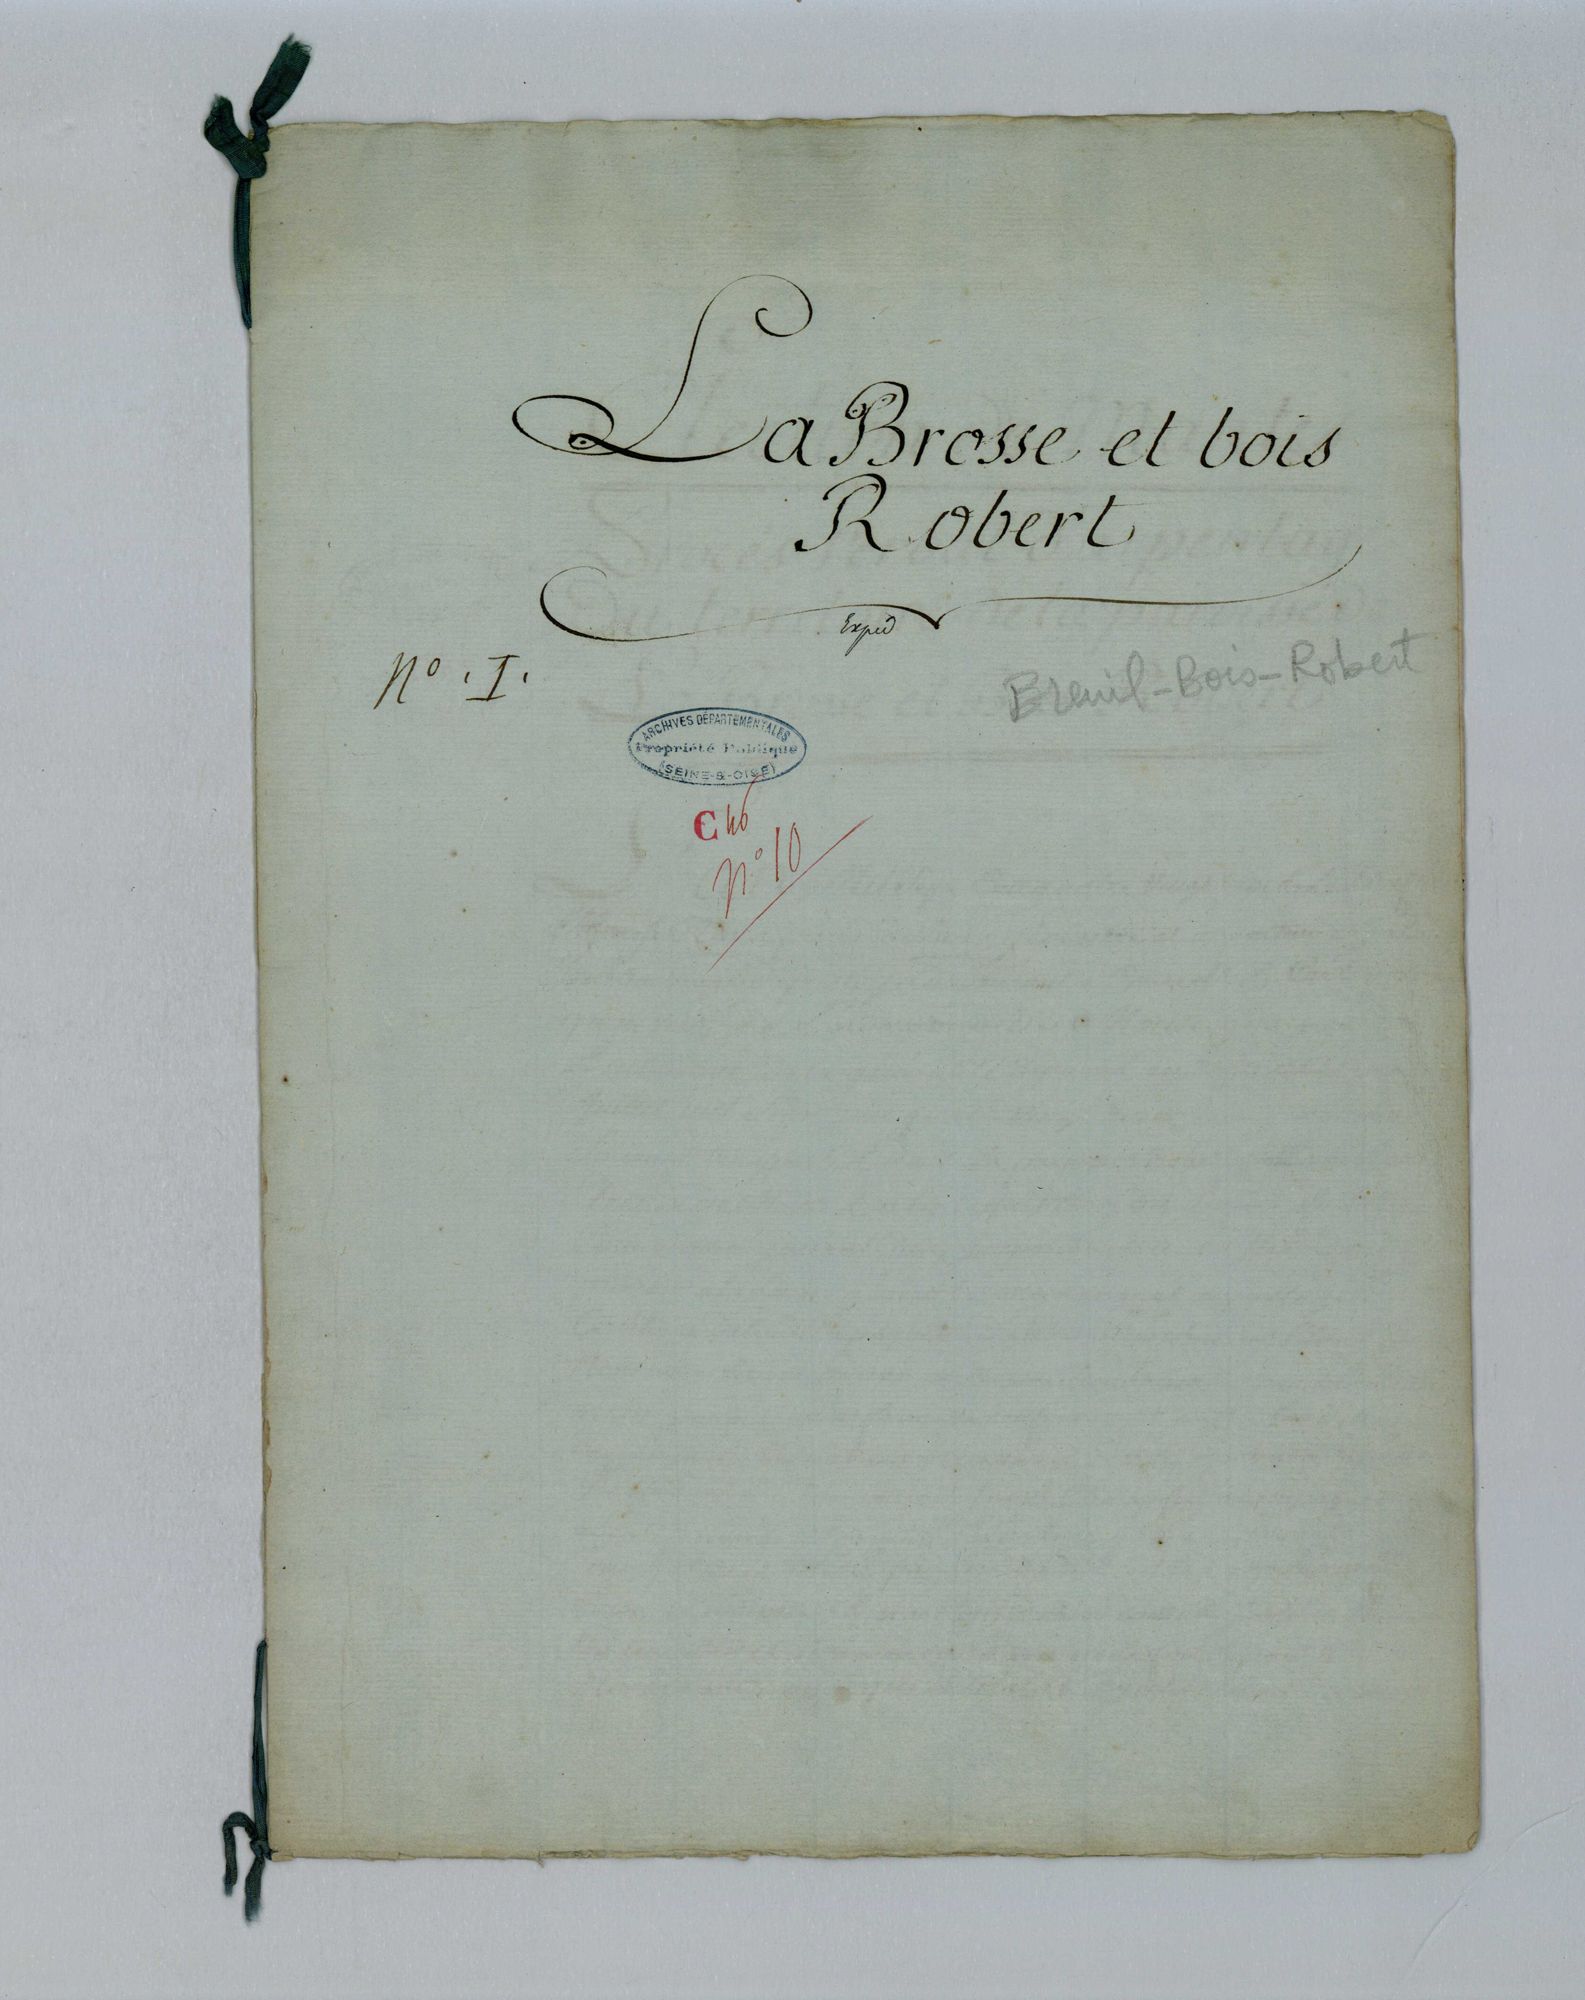 La Brosse et bois
Robert
Expéd
N° . I .
Breuil-Bois-Robert
ARCHIVES DÉPARTEMENTALES
Propriété Publique
(SEINE-&-OISE)
C 46
N° 10